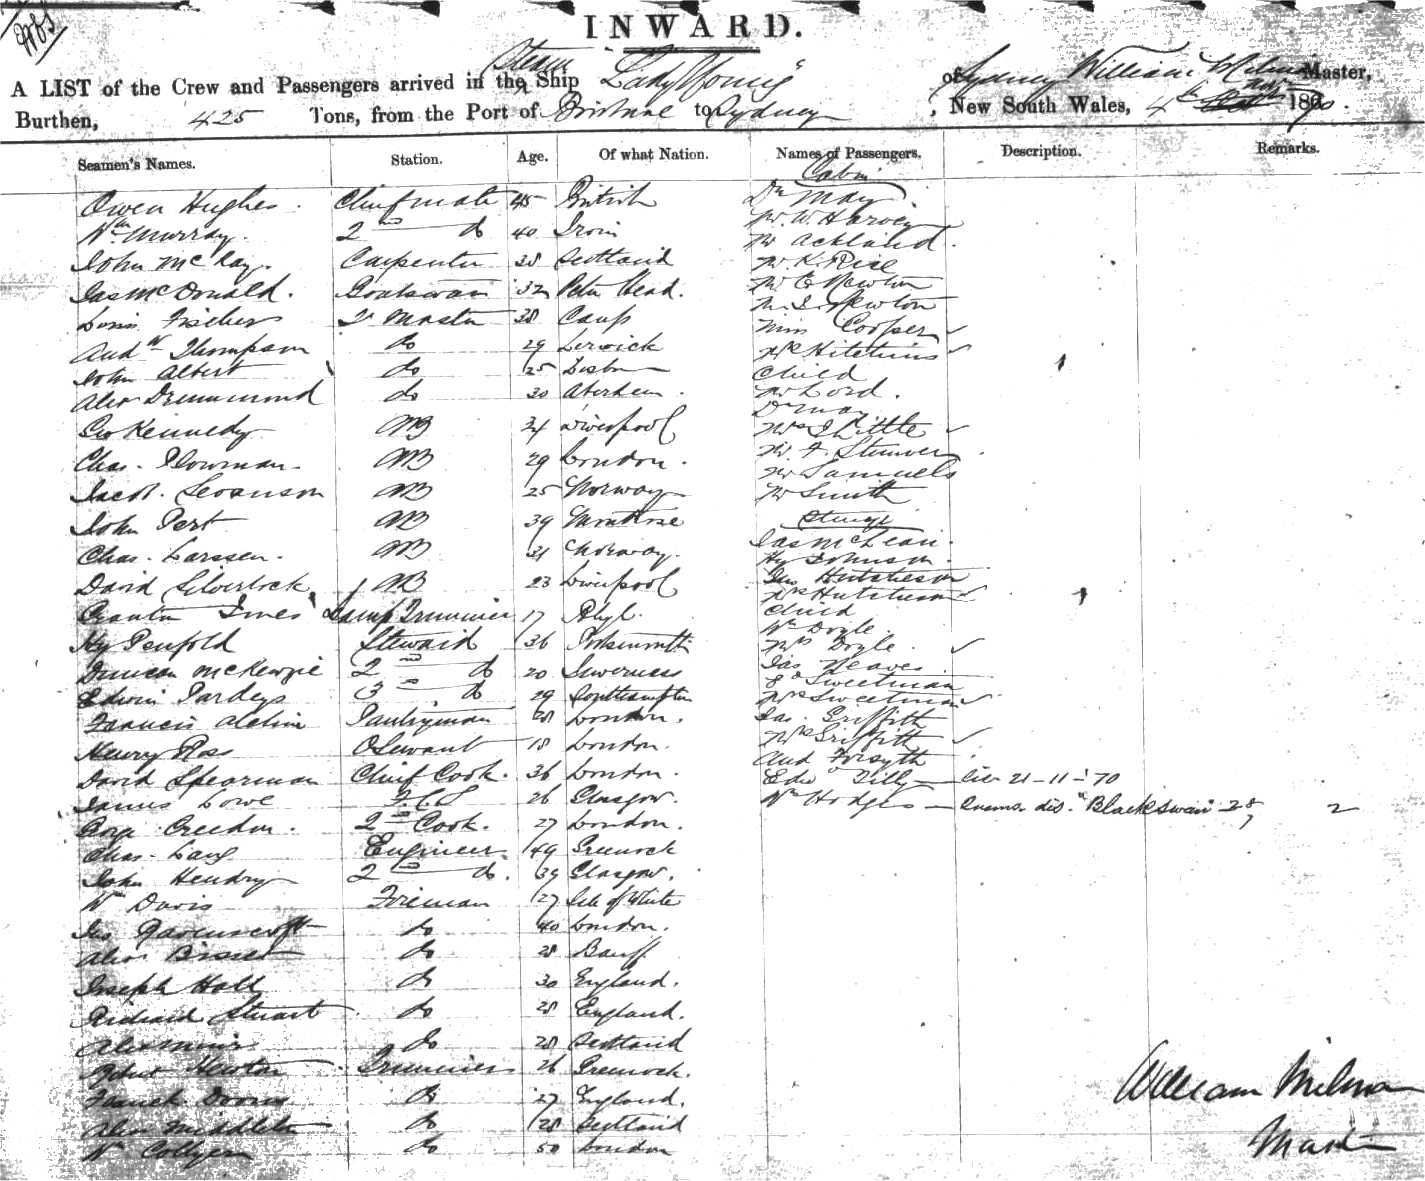 INWARD.
A LIST of the Crew and Passengers arrived in the Steam Ship "Lady Young" of Sydney William Milman Master,
Burthen, 425 Tons, from the Port of Brisbane to Sydney, New South Wales, 4th Nov 1870.
Seamen's Names. Station. Age. Of what Nation. Names of Passengers. Description. Remarks.
Cabin
Owen Hughes. Chief mate 45 British Dr May
Wm Murray. 2nd do 40 Mr W. Harvey
Mr Ackland.
John McKay. Carpenter 38 Scotland Mr K. Rice
Jas McDonald. Boatswain 32 Peter Head. Mr E Newton
Mr I. Newton
Louis Fischer Qr Master 38 Miss Cooper
Andw Thompson do 29 Lerwick Mrs Hitchins
John Albert do 25 Lisbon Child
Alex Drummond do 30 Aberdeen. Mr Lord.
Dr May
Geo Kennedy AB 24 Liverpool Mrs I Little
Chas. Plowman. AB 29 London. Mr F.
Mr Samuels
Jacob. Swanson AB 25 Norway Mr Smith
John Pert AB 39 Montrose Steerage
Chas. Larssen. AB 31 Norway. Jas McLean.
Hy Johnson.
David Silverlock AB 23 Liverpool Geo Hutcheson
Mrs Hutcheson
Innes Lamp Trimmer 17 Rhyl. Child
Hy Penfold Steward 36 Portsmouth Wm Doyle.
Mrs Doyle.
Duncan McKenzie 2nd do 20 Inverness Jas Neaves
Edwin Pardey 3rd do 29 Southampton Ed Sweetman
Mrs Sweetman
Francis Pantryman 28 London. Jas. Griffith
Henry Ross Servant 18 London. Mrs Griffith
And Forsyth
David Spearman Chief Cook. 36 London. Edwd Tilly — 21-11-70
James Lowe F.C.S 26 Glasgow. Wm Hodges — dis. "Black Swan" 28/7 2
Creedon. 2nd Cook. 27 London.
Chas. Lang Engineer 49 Greenock
John Hendry 2nd do. 39 Glasgow.
Wm Davis Fireman 27 Isle of White
Jas Ravenscroft do 40 London.
Alex Bisset do 28 Banff
Joseph Hall do 30 England.
Richard Stuart do 28 England.
Alex Muir do 28 Scotland
Newton Trimmer 26 Greenock.
do 27 England.
Alex Middleton do 28 Scotland
Wm Collyer do 50 London
William Milman
Master